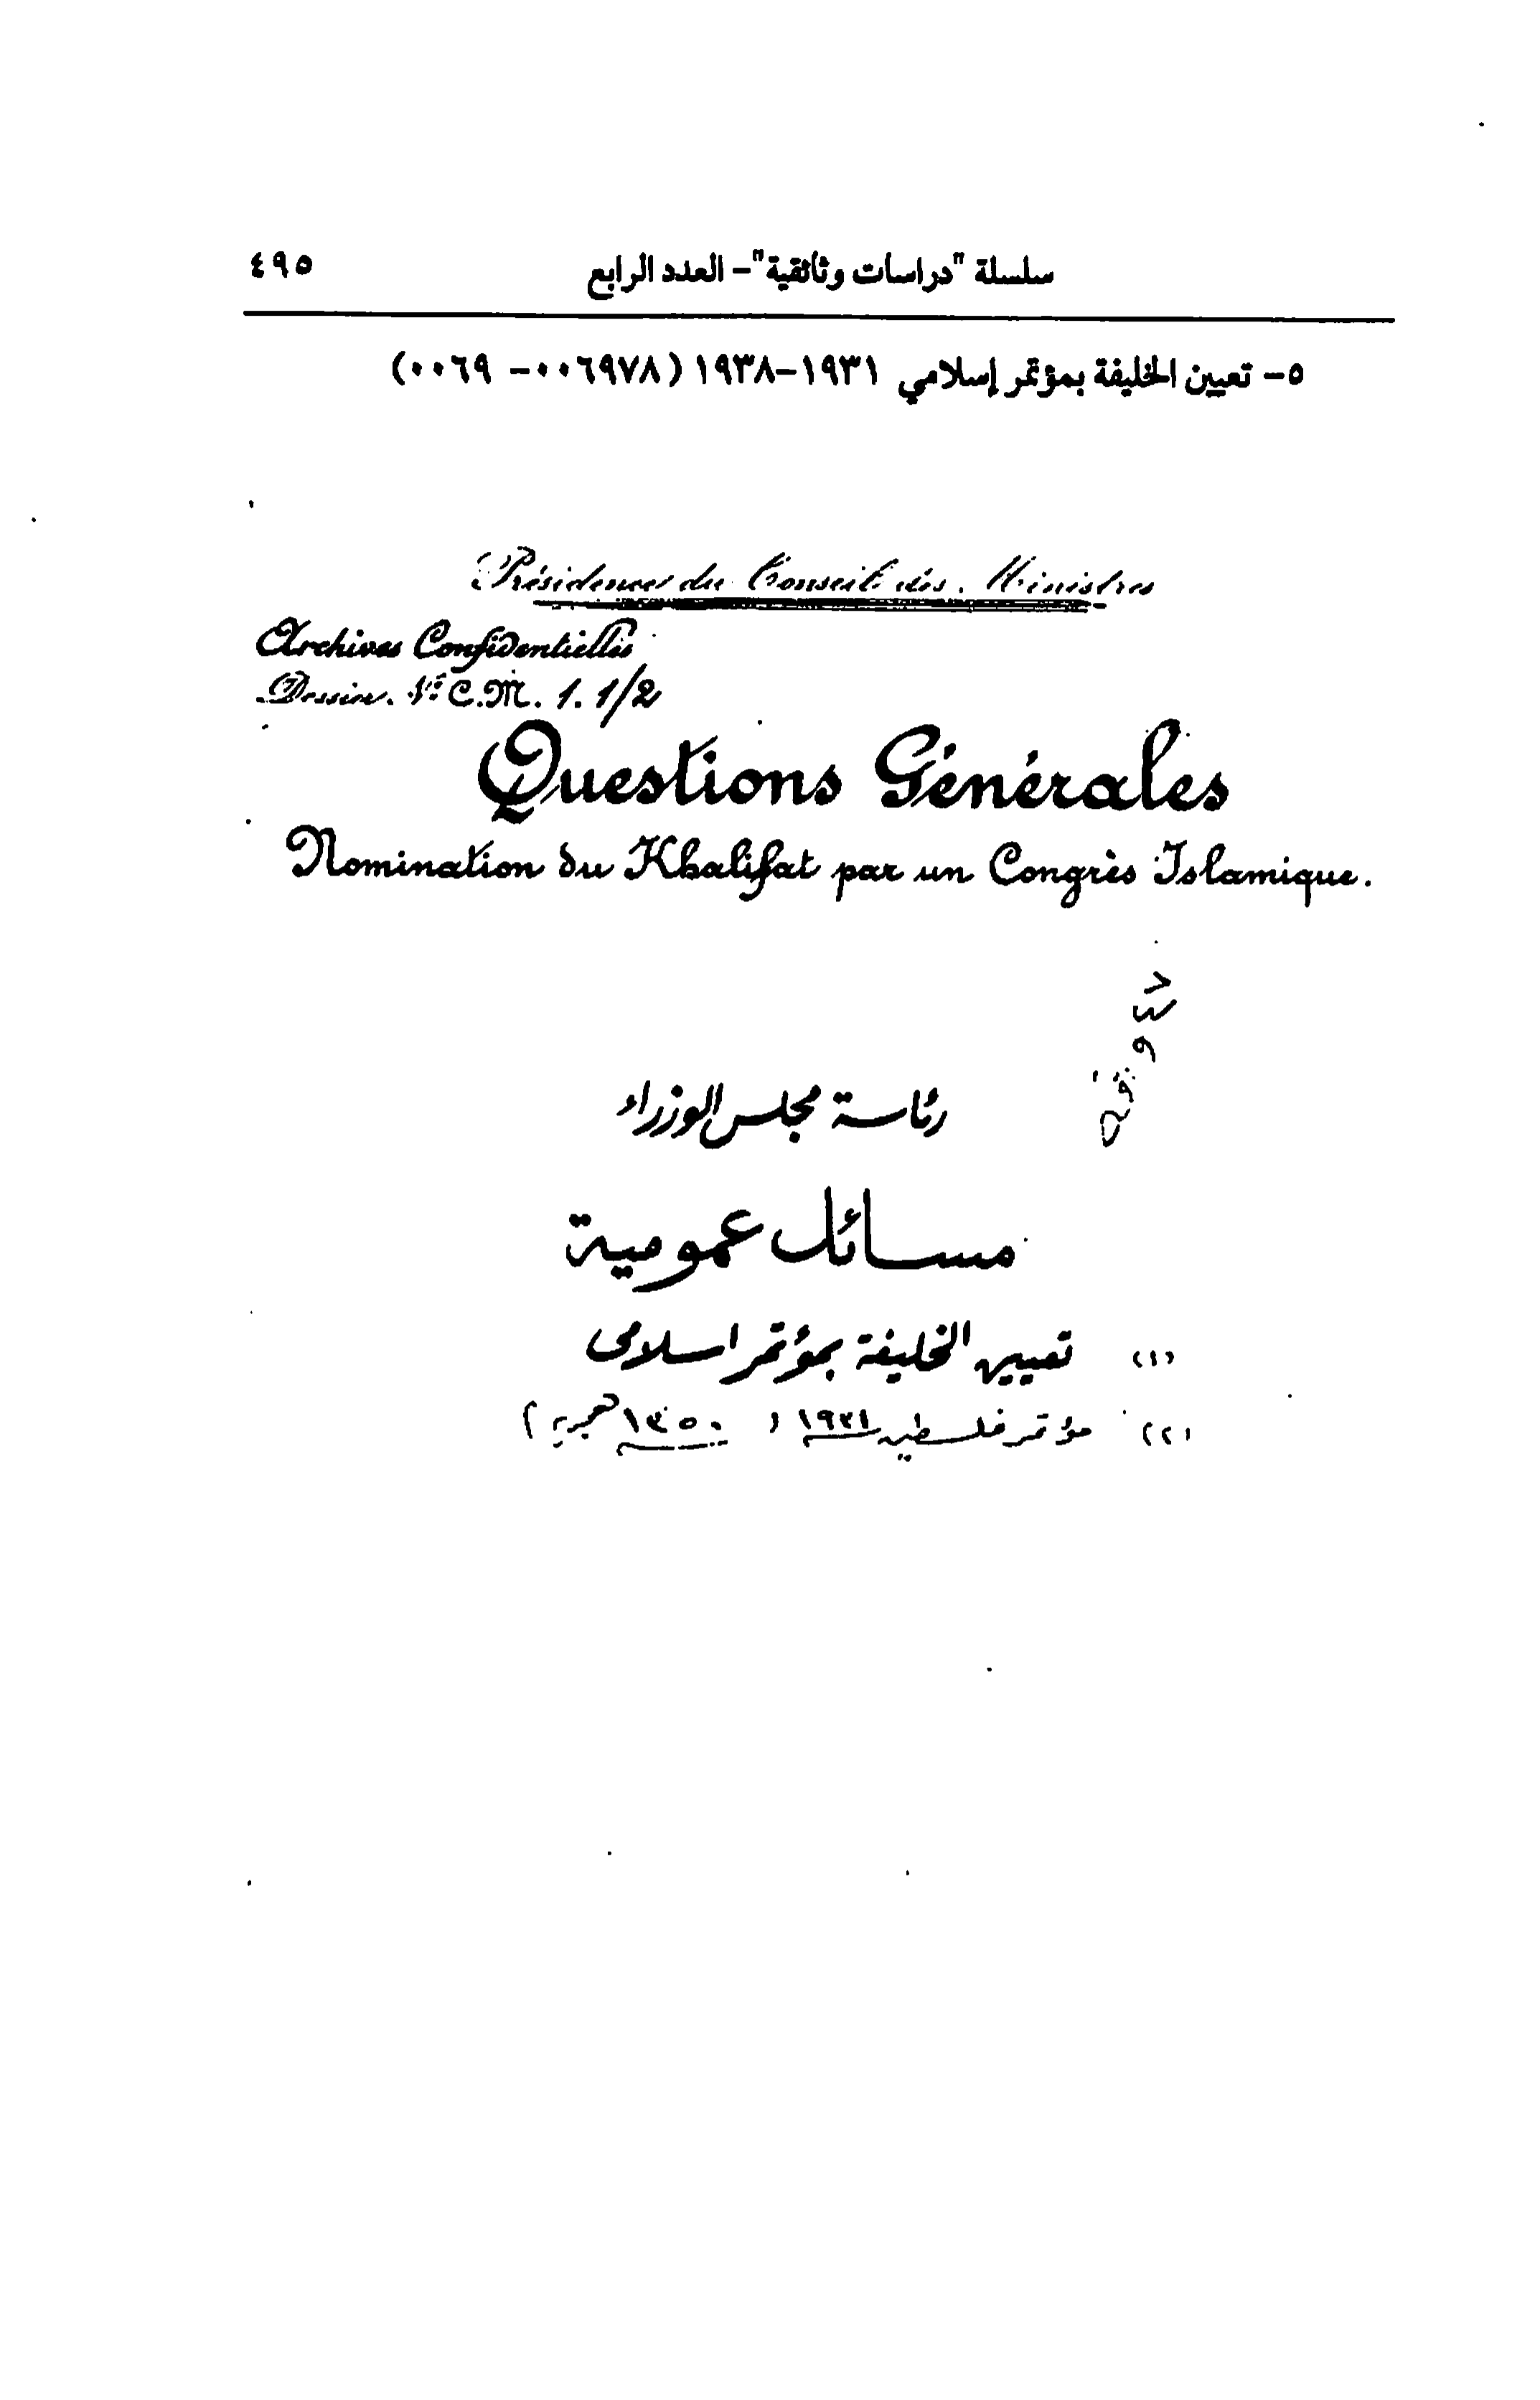 سلسلة "دراسات وثائقية"- العدد الرابع ٤٩٥
٥- تعيين الخليفة بمؤتمر إسلامي ١٩٣١-١٩٣٨ (٠٠٦٩٧٨- ٠٠٦٩)
Présidence du Conseil des Ministres
Archives Confidentielles
Dossier. Nº C.M. 1. 1/2
Questions Générales
Nomination du Khalifat par un Congrès Islamique.
رئاسة مجلس الوزراء
مسائل عمومية
(١) تعيين الخليفة بمؤتمر اسلامى
(٢) مؤتمر فلسطين ١٩٣١ (١٣٥٠ هجرية)